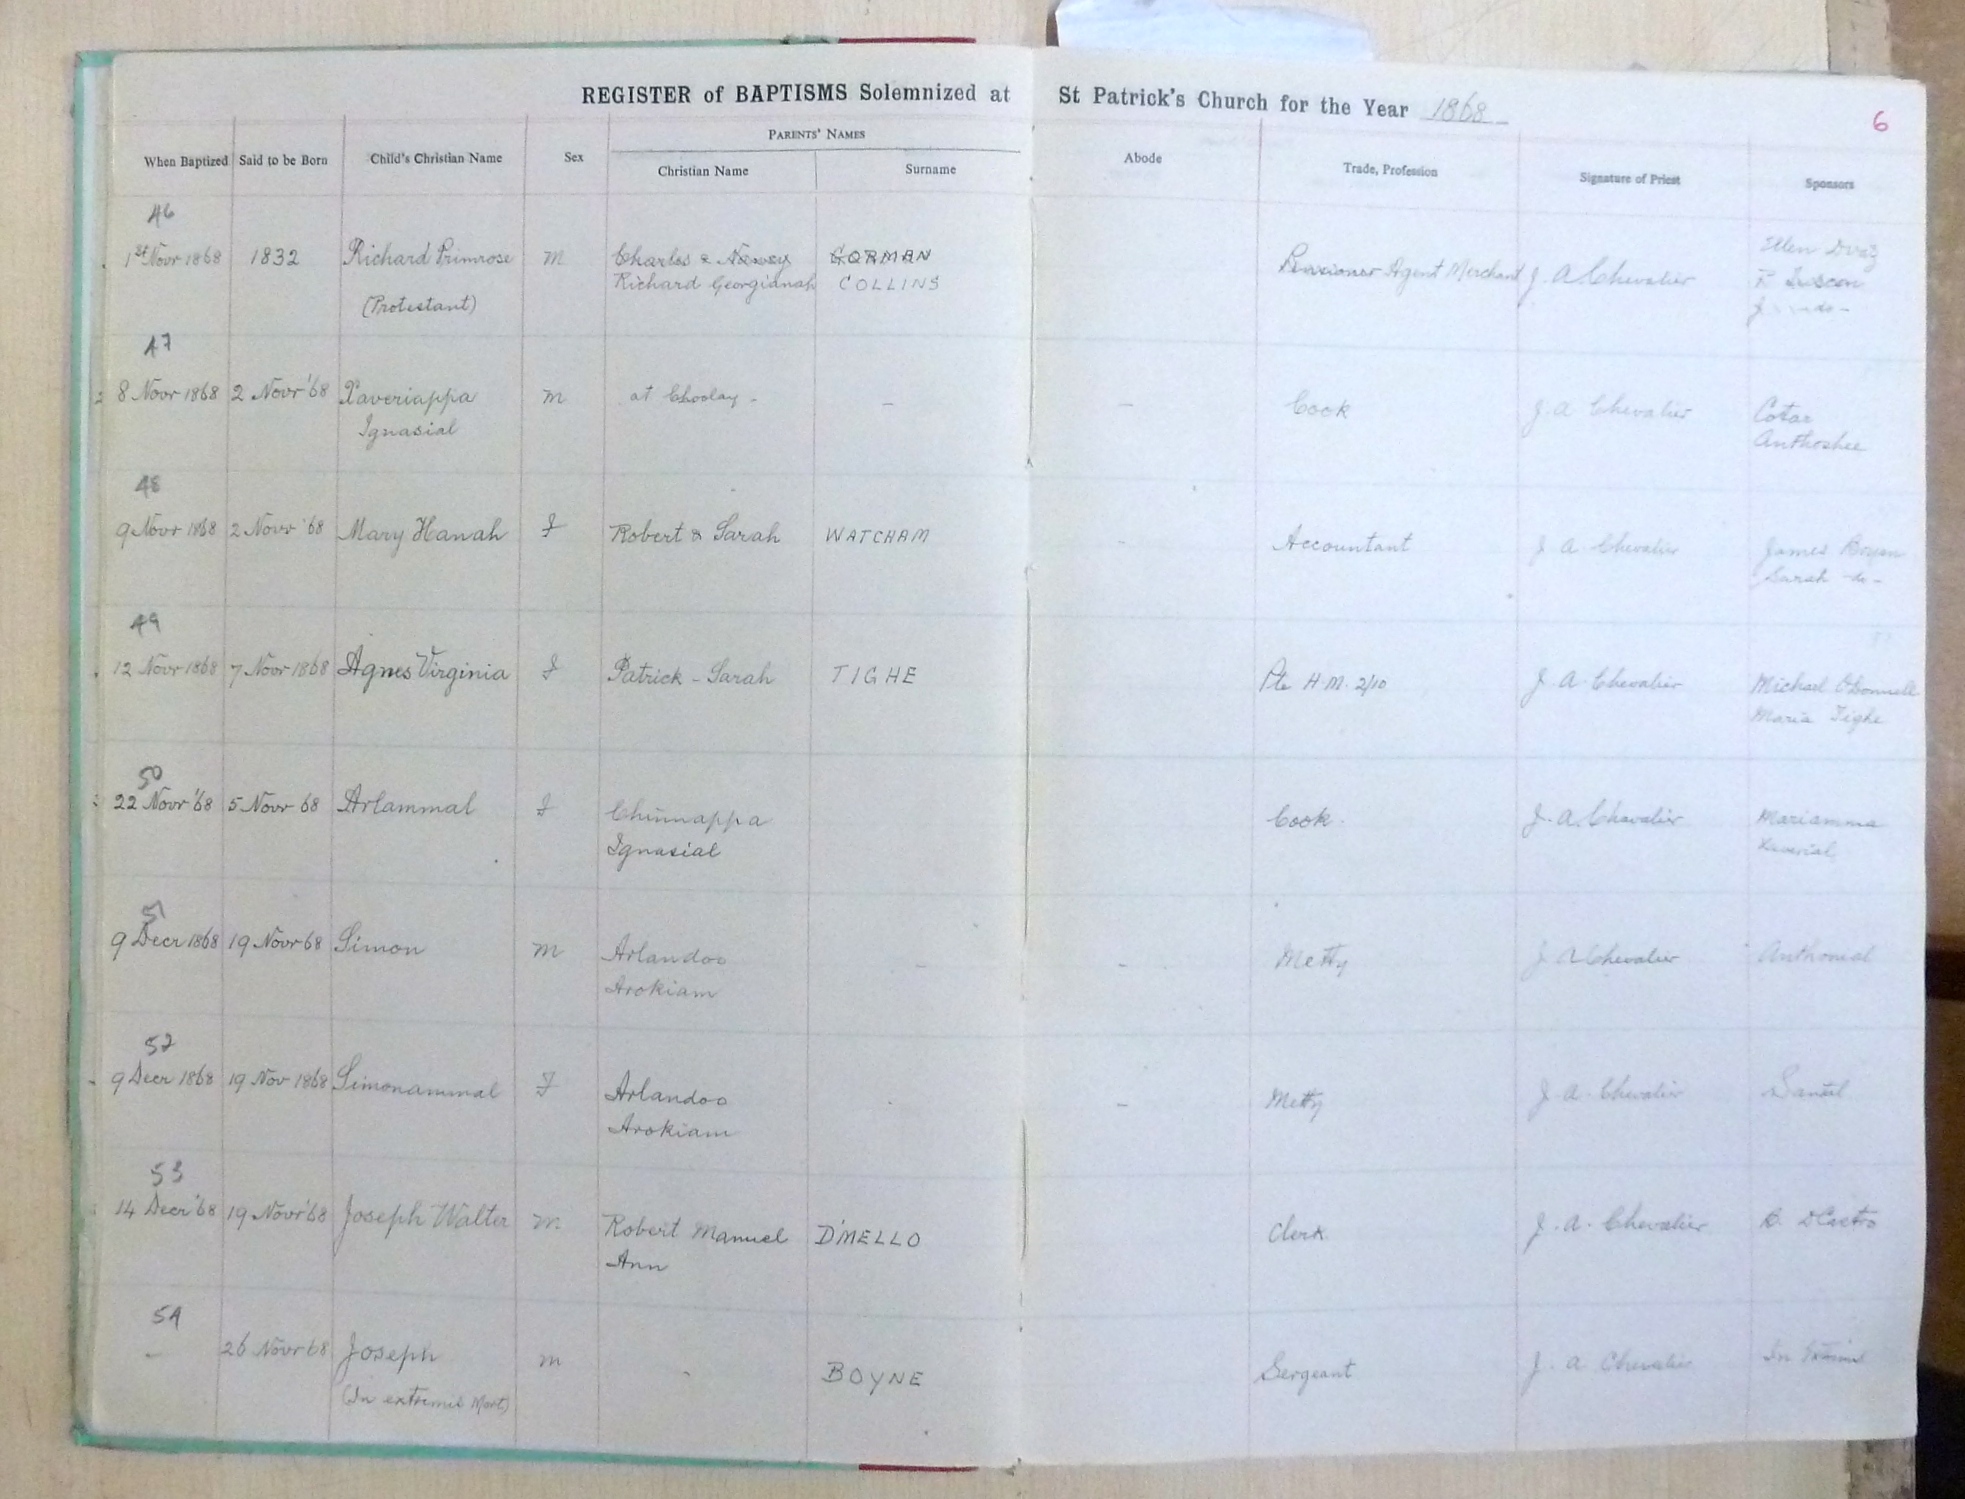 REGISTER of BAPTISMS Solemnized at St Patrick's Church for the Year 1868
6
PARENTS' NAMES
When Baptized Said to be Born Child's Christian Name Sex Christian Name Surname Abode Trade, Profession Signature of Priest Sponsors
46
1st Novr 1868 1832 Richard Primrose m Charles & GORMAN Pensioner Agent Merchant J. A. Chevalier Ellen
Richard Georgianah COLLINS
(Protestant)
47
8 Novr 1868 2 Novr '68 Xaveriappa m at Choolay - - - Cook J. A Chevalier Cotar
Ignasial Anthoshee
48
9 Novr 1868 2 Novr '68 Mary Hanah F Robert & Sarah WATCHAM - Accountant J A Chevalier James
Sarah -do-
49
12 Novr 1868 7 Novr 1868 Agnes Virginia F Patrick - Sarah TIGHE Pte H.M. 2/10 J. A. Chevalier Michael OConnell
Maria Tighe
50
22 Novr '68 5 Novr 68 Arlammal F Chinnappa Cook. J. A. Chevalier Mariamma
Ignasial Xaverial
51
9 Decr 1868 19 Novr 68 Simon m Arlandoo - - Metty J A Chevalier Anthonial
Arokiam
52
9 Decr 1868 19 Nov 1868 Simonammal F Arlandoo - Metty J. A. Chevalier
Arokiam
53
14 Decr '68 19 Novr '68 Joseph Walter m Robert Manuel D'MELLO Clerk J. A. Chevalier DCastro
Ann
54
- 26 Novr 68 Joseph m - BOYNE Sergeant J. A Chevalier In
(In extremis Mort)